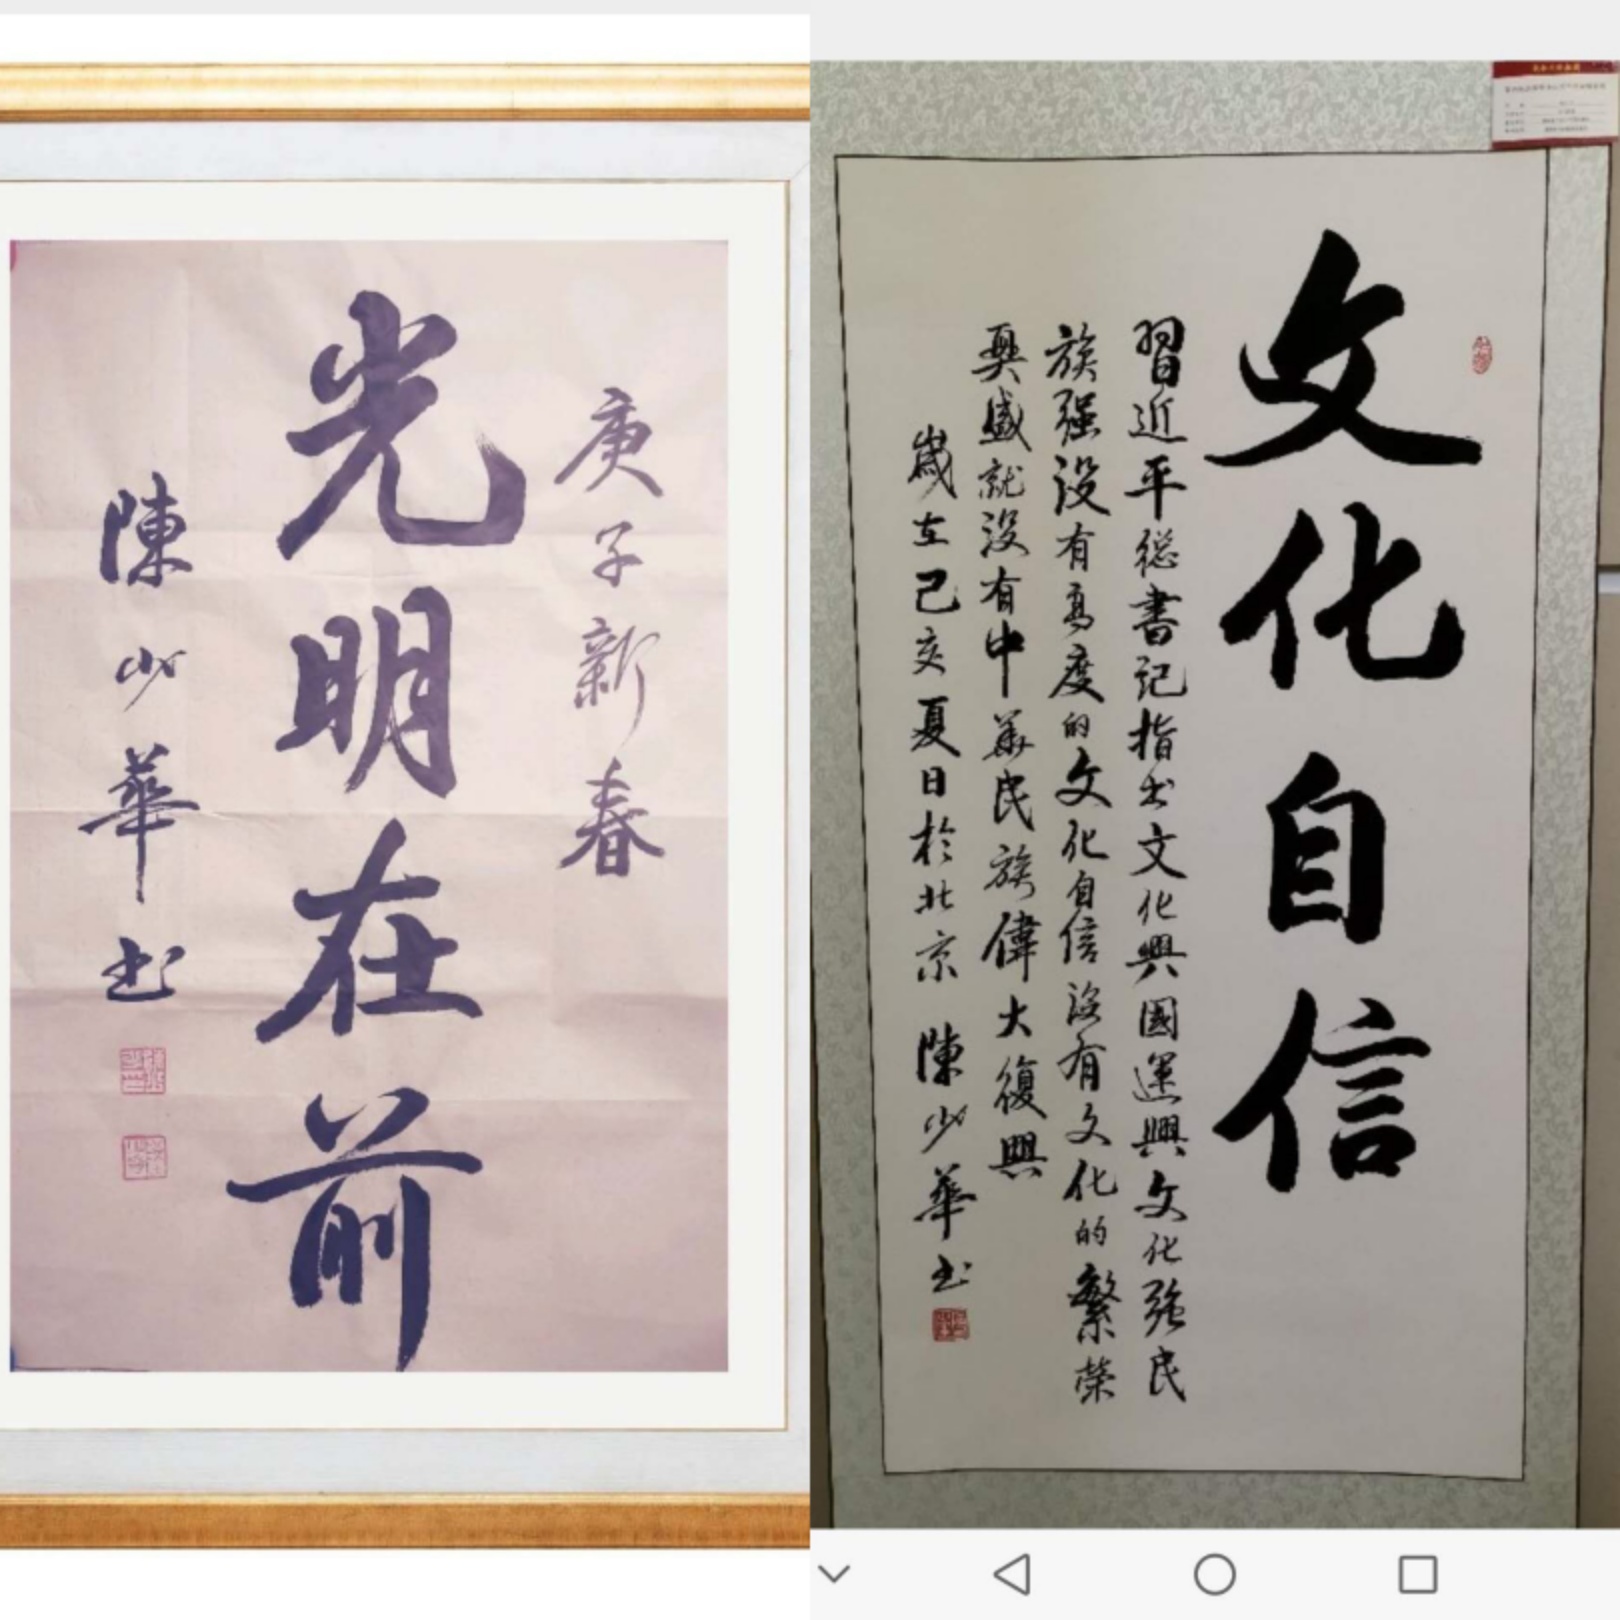 庚子新春
光明在前
陳少華书
文化自信
習近平總書記指出文化興國運興文化强民
族强没有高度的文化自信没有文化的繁榮
興盛就没有中華民族偉大復興
歲在己亥夏日於北京 陳少華书